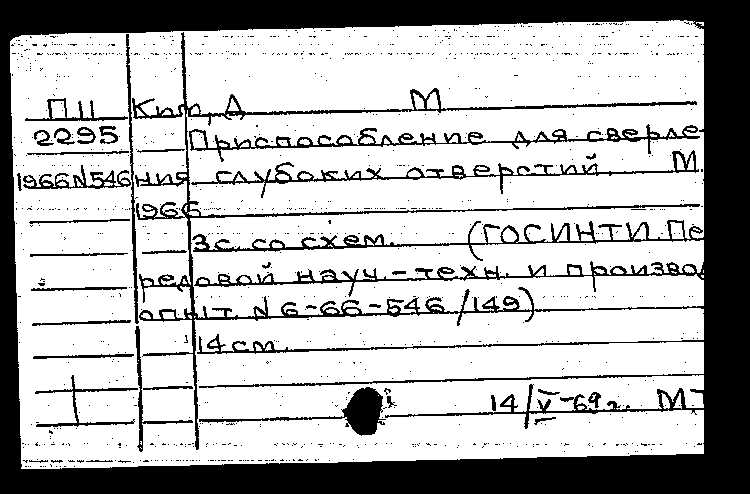 П11 Кит, Д М
2295 Приспособление для сверле-
1966N546 ния глубоких отверстий. М.
1966
3с. со схем. (ГОСИНТИ. Пе
редовой науч.-техн. и производ
опыт. N 6-66-546/149)
14 см.
14/V-69г. М.